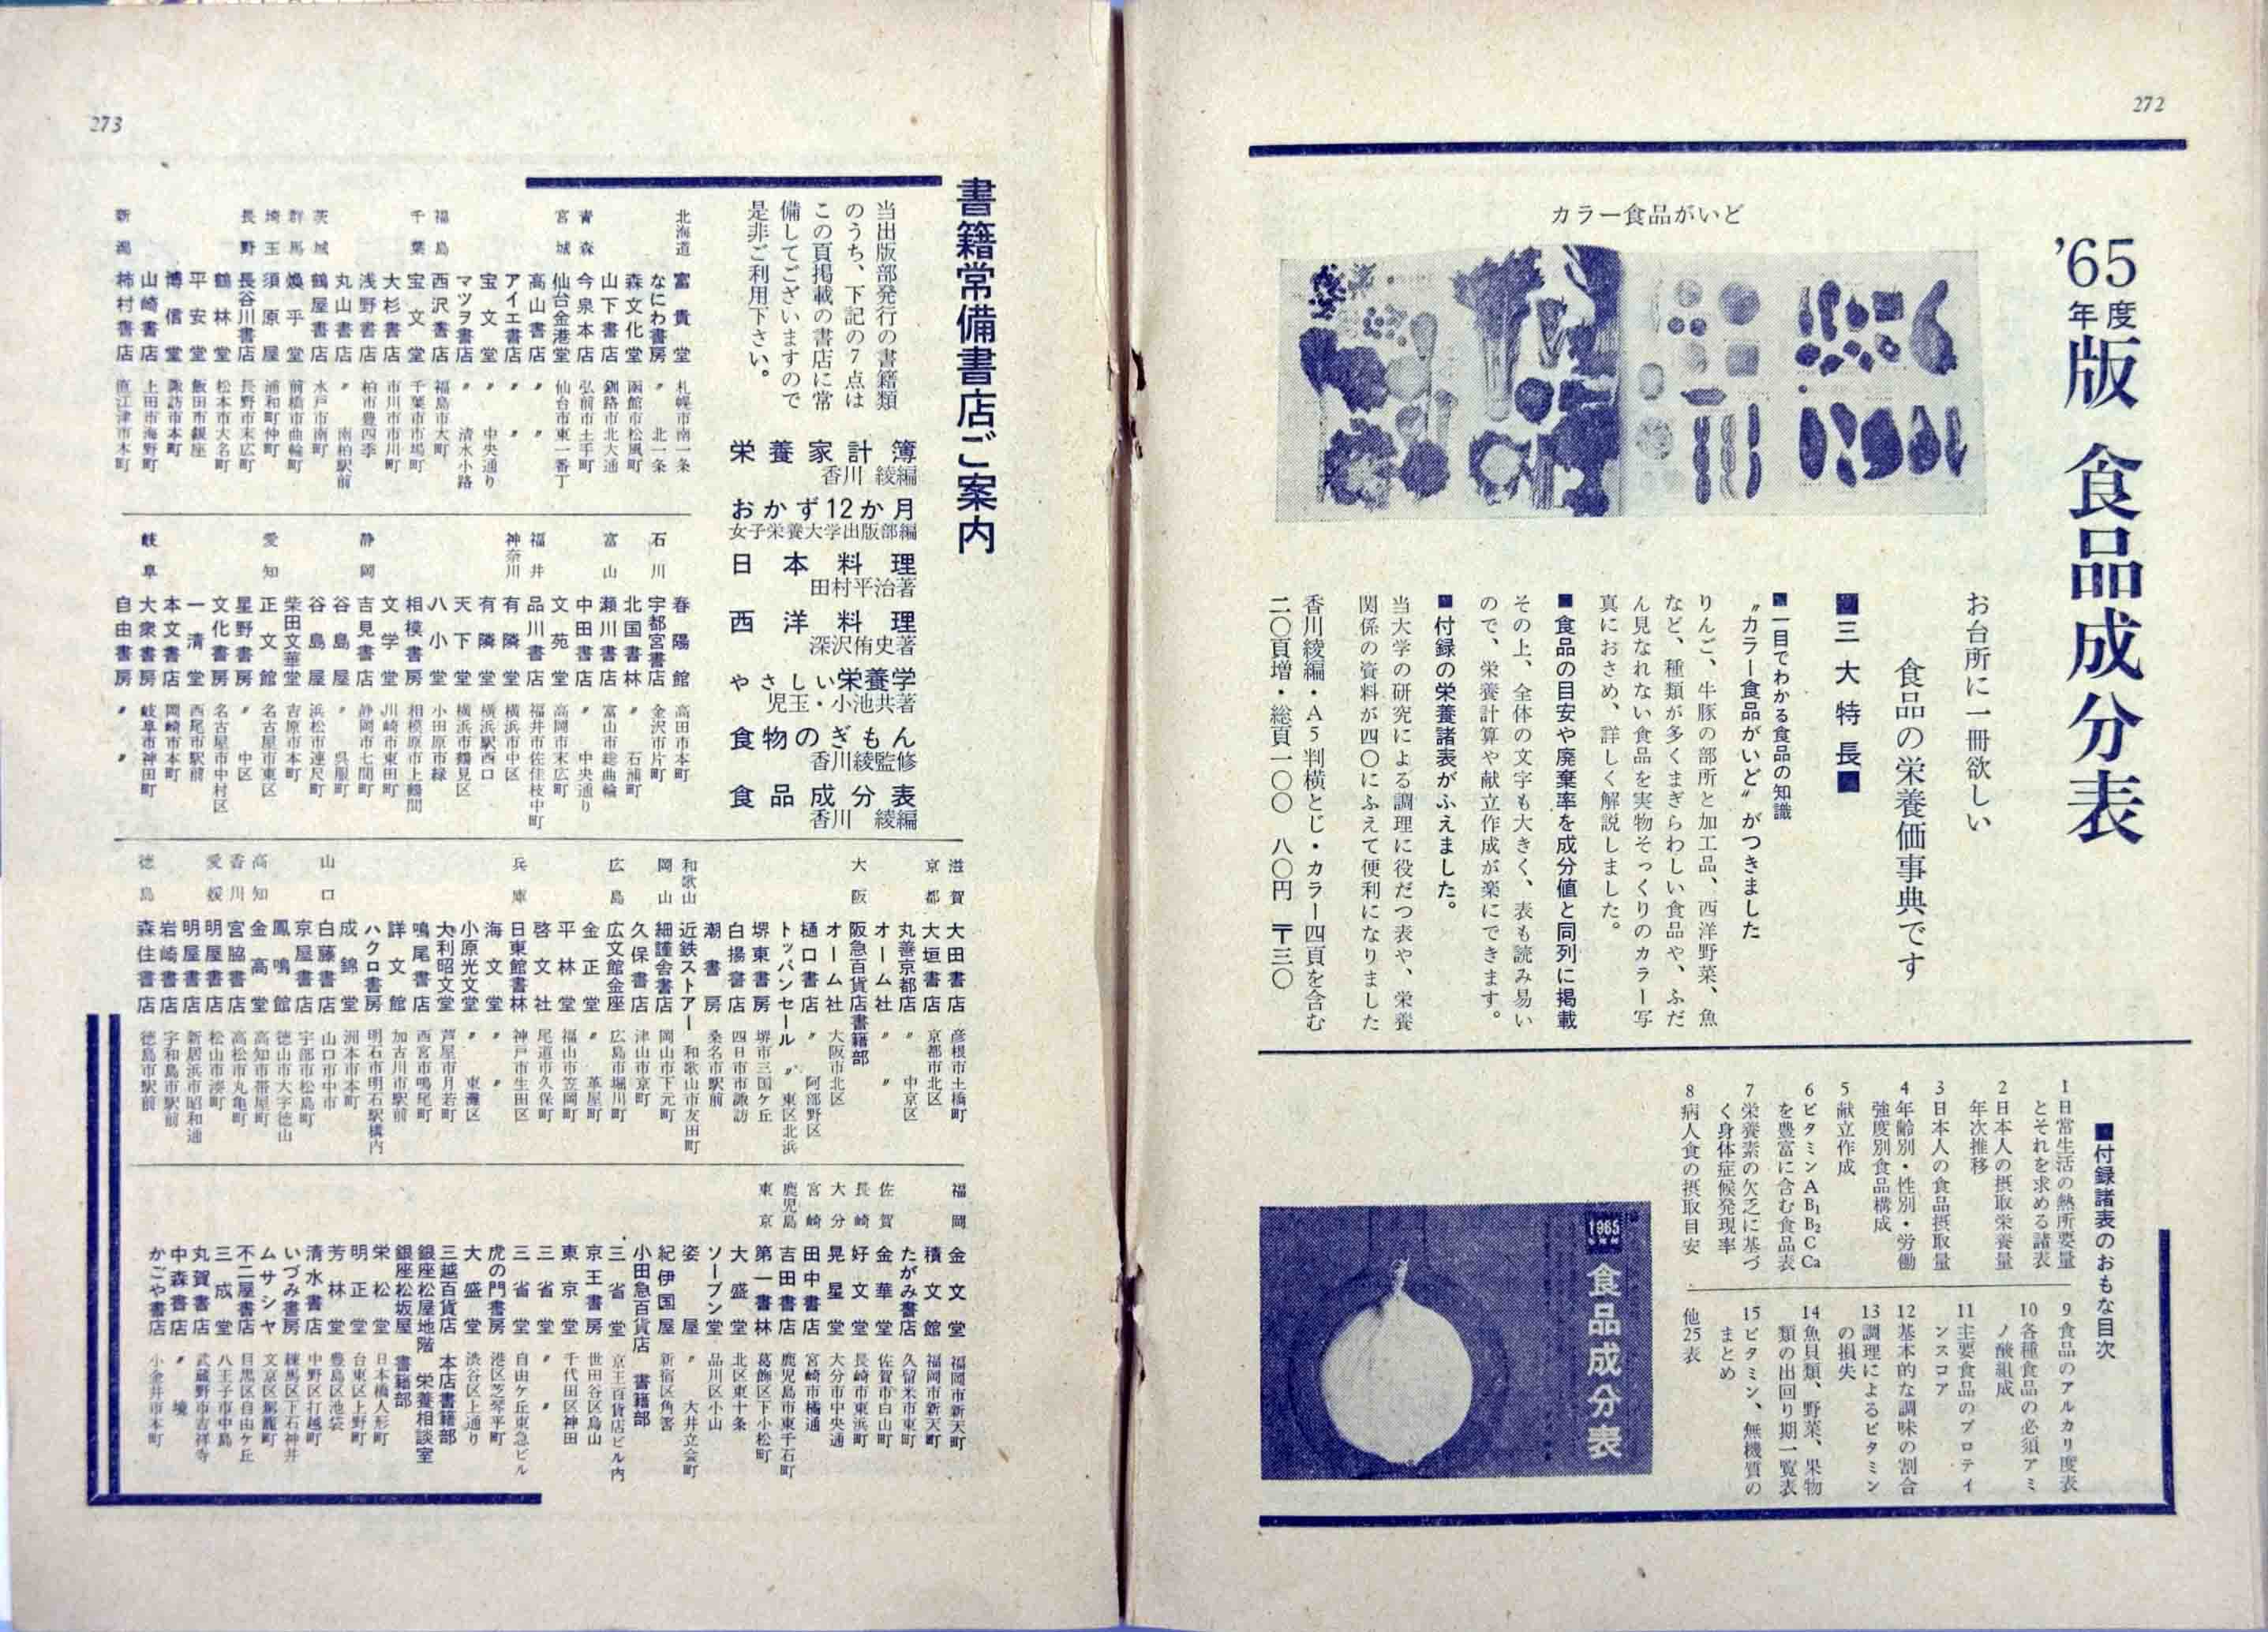 272
'65年度版 食品成分表
お台所に一冊欲しい
食品の栄養価事典です
■三大特長■
■一目でわかる食品の知識
〝カラー食品がいど〟がつきました
りんご、牛豚の部所と加工品、西洋野菜、魚
など、種類が多くまぎらわしい食品や、ふだ
ん見なれない食品を実物そっくりのカラー写
真におさめ、詳しく解説しました。
■食品の目安や廃棄率を成分値と同列に掲載
その上、全体の文字も大きく、表も読み易い
ので、栄養計算や献立作成が楽にできます。
■付録の栄養諸表がふえました。
当大学の研究による調理に役だつ表や、栄養
関係の資料が四〇にふえて便利になりました
香川綾編・A5判横とじ・カラー四頁を含む
二〇頁増・総頁一〇〇 八〇円 〒三〇
カラー食品がいど
■付録諸表のおもな目次
1日常生活の熱所要量
とそれを求める諸表
2日本人の摂取栄養量
年次推移
3日本人の食品摂取量
4年齢別・性別・労働
強度別食品構成
5献立作成
6ビタミンA B₁ B₂ C Ca
を豊富に含む食品表
7栄養素の欠乏に基づ
く身体症候発現率
8病人食の摂取目安
9食品のアルカリ度表
10各種食品の必須アミ
ノ酸組成
11主要食品のプロテイ
ンスコア
12基本的な調味の割合
13調理によるビタミン
の損失
14魚貝類、野菜、果物
類の出回り期一覧表
15ビタミン、無機質の
まとめ
他25表
1965
食品成分表
273
書籍常備書店ご案内
当出版部発行の書籍類
のうち、下記の7点は
この頁掲載の書店に常
備してございますので
是非ご利用下さい。
栄養家計簿
香川 綾編
おかず12か月
女子栄養大学出版部編
日本料理
田村平治著
西洋料理
深沢侑史著
やさしい栄養学
児玉・小池共著
食物のぎもん
香川綾監修
食品成分表
香川 綾編
北海道 富貴堂 札幌市南一条
なにわ書房 〃 北一条
森文化堂 函館市松風町
山下書店 釧路市北大通
青森 今泉本店 弘前市土手町
宮城 仙台金港堂 仙台市東一番丁
高山書店 〃 〃
アイエ書店 〃 〃
宝文堂 〃 中央通り
マツヲ書店 〃 清水小路
福島 西沢書店 福島市大町
千葉 宝文堂 千葉市市場町
大杉書店 市川市市川町
浅野書店 柏市豊四季
丸山書店 〃 南柏駅前
茨城 鶴屋書店 水戸市南町
群馬 煥乎堂 前橋市曲輪町
埼玉 須原屋 浦和町仲町
長野 長谷川書店 長野市末広町
鶴林堂 松本市大名町
平安堂 飯田市銀座
博信堂 諏訪市本町
山崎書店 上田市海野町
新潟 柿村書店 直江津市本町
春陽館 高田市本町
石川 宇都宮書店 金沢市片町
北国書林 〃 石浦町
富山 瀬川書店 富山市総曲輪
中田書店 〃 中央通り
文苑堂 高岡市末広町
福井 品川書店 福井市佐佳枝中町
神奈川 有隣堂 横浜市中区
有隣堂 横浜駅西口
天下堂 横浜市鶴見区
八小堂 小田原市緑
相模書房 相模原市上鶴間
文学堂 川崎市東田町
静岡 吉見書店 静岡市七間町
谷島屋 〃 呉服町
谷島屋 浜松市連尺町
柴田文華堂 吉原市本町
愛知 正文館 名古屋市東区
星野書房 〃 中区
文化書房 名古屋市中村区
一清堂 西尾市駅前
本文書店 岡崎市本町
岐阜 大衆書房 岐阜市神田町
自由書房 〃 〃
滋賀 大田書店 彦根市土橋町
京都 大垣書店 京都市北区
丸善京都店 〃 中京区
オーム社 〃 〃
大阪 阪急百貨店書籍部
オーム社 大阪市北区
樋口書店 〃 阿部野区
トッパンセール 〃 東区北浜
堺東書房 堺市三国ケ丘
白揚書店 四日市市諏訪
潮書房 桑名市駅前
和歌山 近鉄ストアー 和歌山市友田町
岡山 細謹舎書店 岡山市下元町
久保書店 津山市京町
広島 広文館金座 広島市堀川町
金正堂 〃 革屋町
平林堂 福山市笠岡町
啓文社 尾道市久保町
兵庫 日東館書林 神戸市生田区
海文堂 〃 〃
小原光文堂 〃 東灘区
大利昭文堂 芦屋市月若町
鳴尾書店 西宮市鳴尾町
詳文館 加古川市駅前
ハクロ書房 明石市明石駅構内
成錦堂 洲本市本町
山口 白藤書店 山口市中市
京屋書店 宇部市松島町
鳳鳴館 徳山市大字徳山
高知 金高堂 高知市帯屋町
香川 宮脇書店 高松市丸亀町
愛媛 明屋書店 松山市湊町
明屋書店 新居浜市昭和通
岩崎書店 宇和島市駅前
徳島 森住書店 徳島市駅前
福岡 金文堂 福岡市新天町
積文館 福岡市新天町
たがみ書店 久留米市東町
佐賀 金華堂 佐賀市白山町
長崎 好文堂 長崎市東浜町
大分 晃星堂 大分市中央通
宮崎 田中書店 宮崎市橘通
鹿児島 吉田書店 鹿児島市東千石町
東京 第一書林 葛飾区下小松町
大盛堂 北区東十条
ソーブン堂 品川区小山
姿屋 〃 大井立会町
紀伊国屋 新宿区角筈
小田急百貨店 書籍部
三省堂 京王百貨店ビル内
京王書房 世田谷区烏山
東京堂 千代田区神田
三省堂 〃 〃
三省堂 自由ケ丘東急ビル
虎の門書房 港区芝琴平町
大盛堂 渋谷区上通り
三越百貨店 本店書籍部
銀座松屋地階 栄養相談室
銀座松坂屋 書籍部
栄松堂 日本橋人形町
明正堂 台東区上野町
芳林堂 豊島区池袋
清水書店 中野区打越町
いづみ書房 練馬区下石神井
ムサシヤ 文京区駕籠町
不二屋書店 目黒区自由ケ丘
三成堂 八王子市中島
丸賀書店 武蔵野市吉祥寺
中森書店 〃 境
かごや書店 小金井市本町